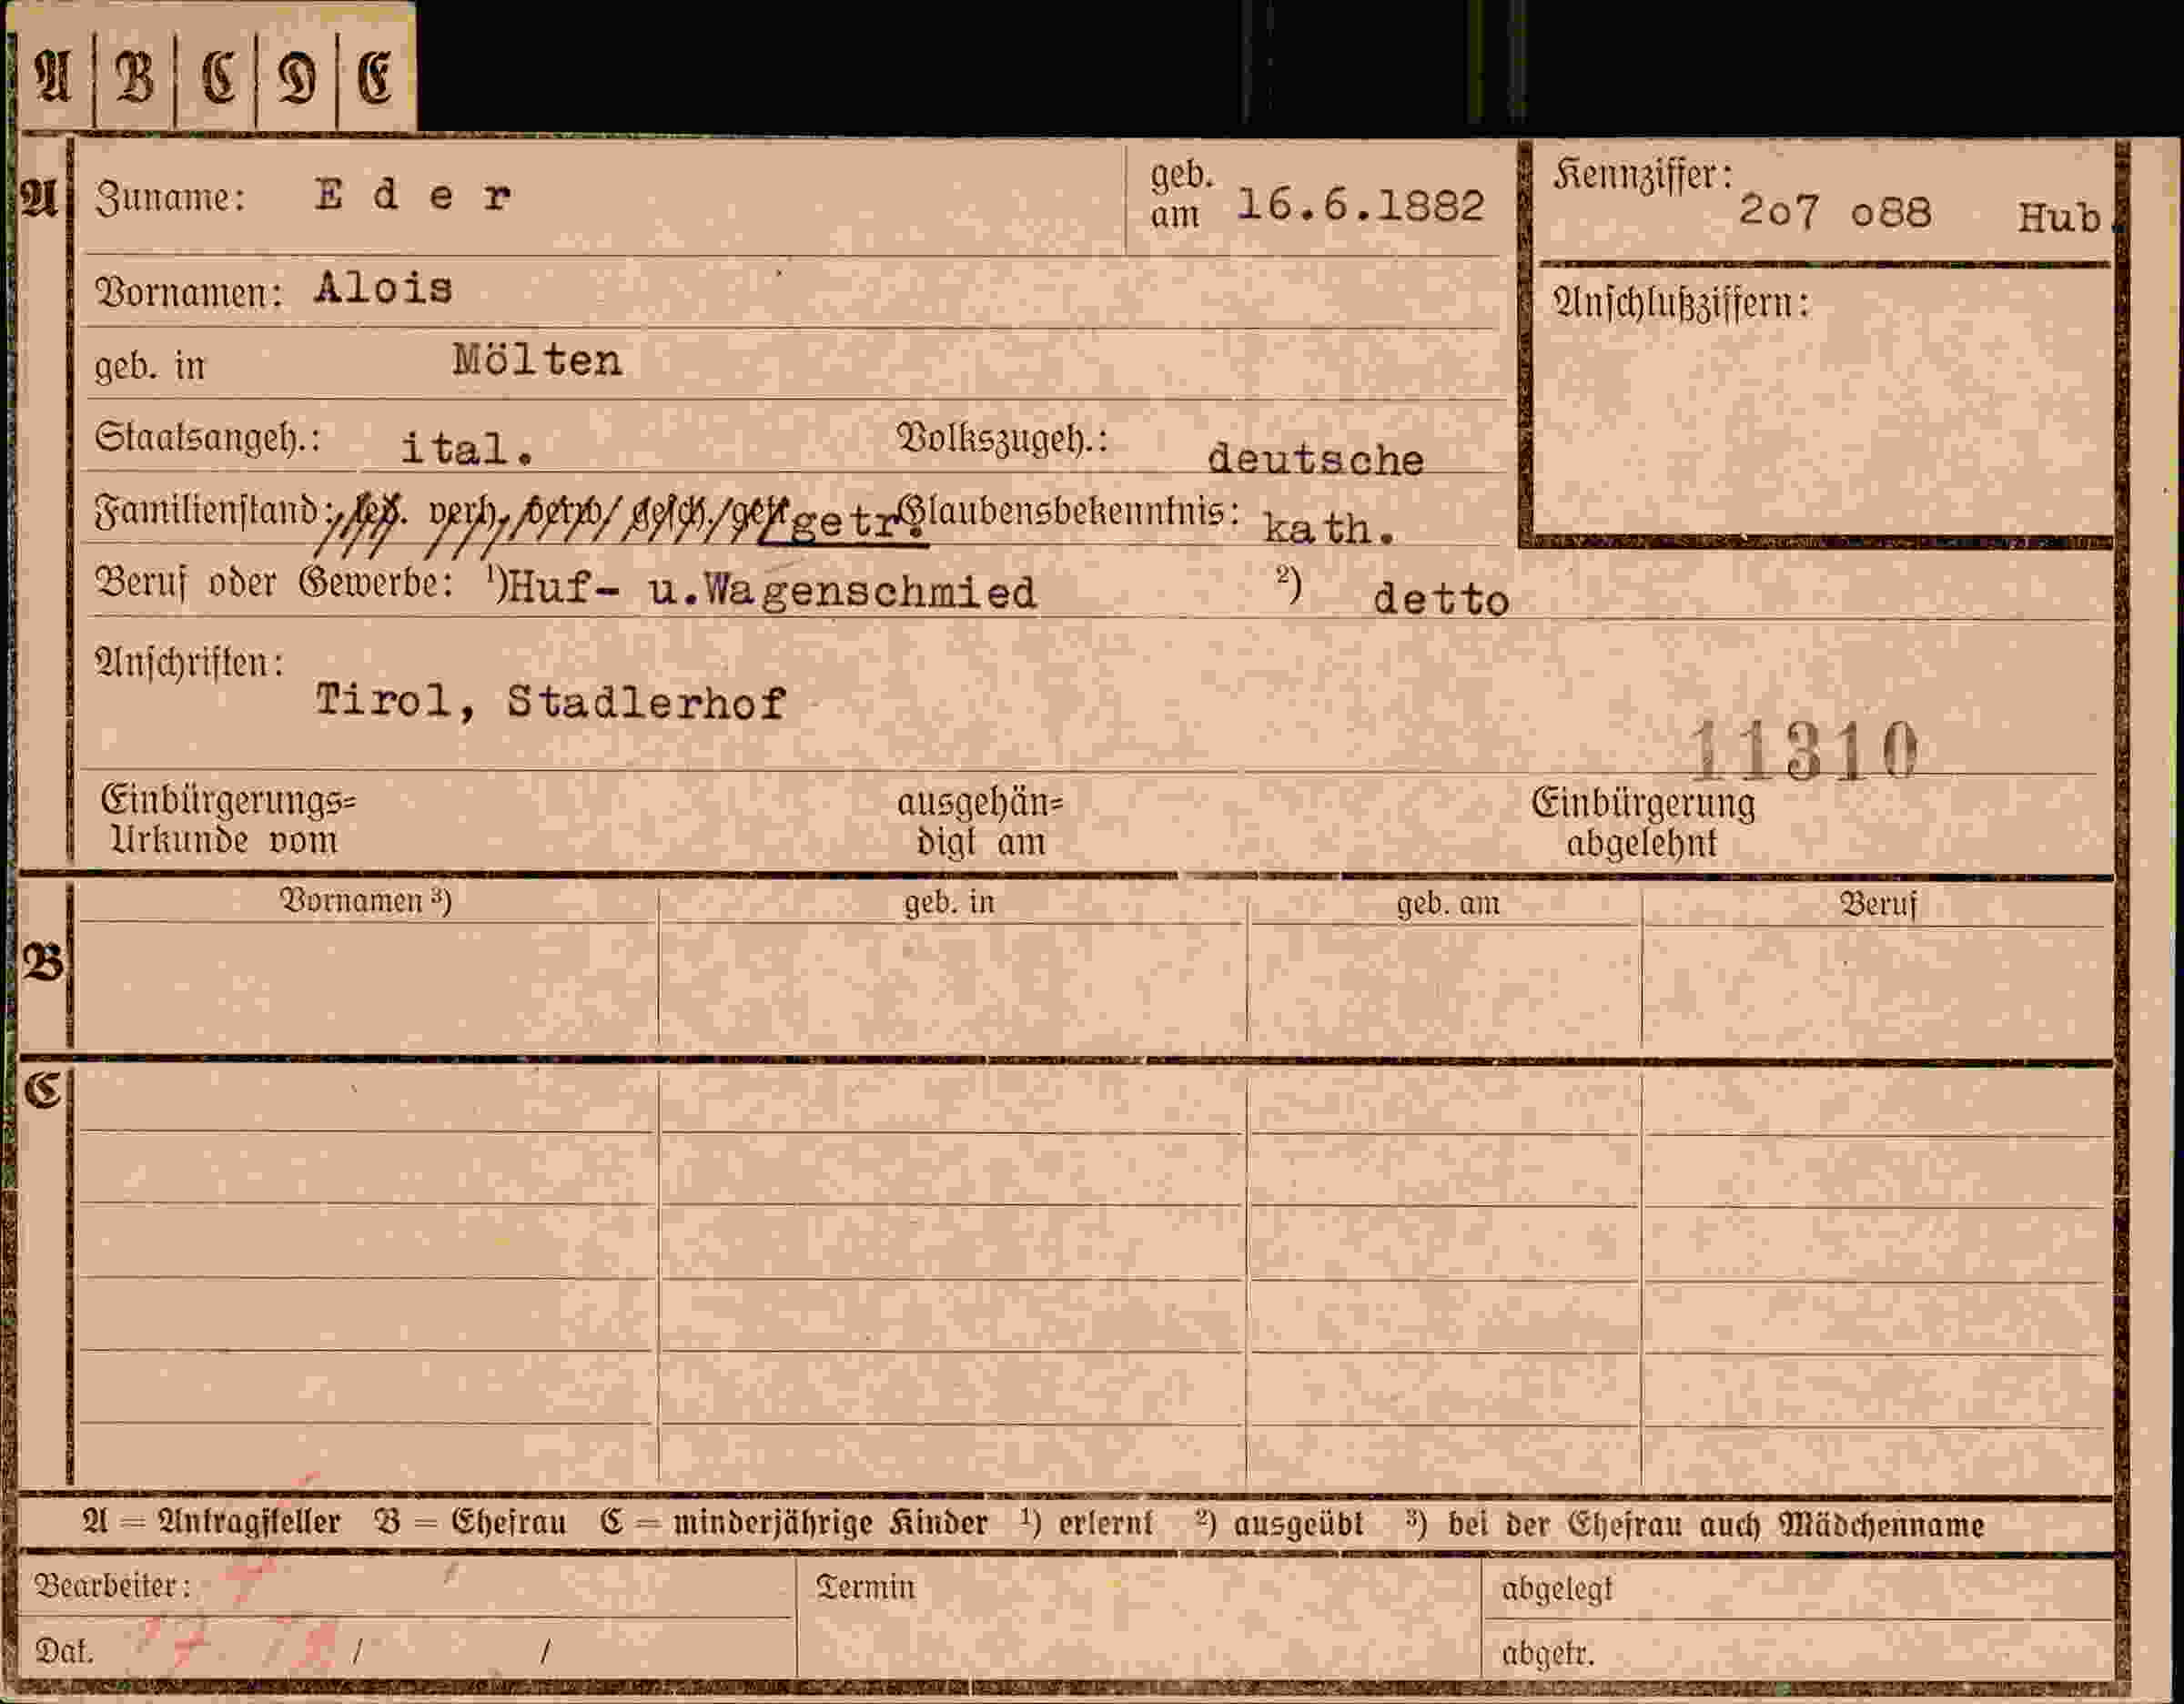 A B C D E
A Zuname: E d e r geb. am 16.6.1882 Kennziffer: 2o7 o88 Hub.
Vornamen: Alois Anschlußziffern:
geb. in Mölten
Staatsangeh.: ital. Volkszugeh.: deutsche
Familienstand: led. verh. verw. gesch. getr. Glaubensbekenntnis: kath.
Beruf oder Gewerbe: ¹)Huf- u.Wagenschmied ²) detto
Anschriften:
Tirol, Stadlerhof
11310
Einbürgerungs= ausgehän= Einbürgerung
Urkunde vom digt am abgelehnt
Vornamen ³) geb. in geb. am Beruf
B
C
A = Antragsteller B = Ehefrau C = minderjährige Kinder ¹) erlernt ²) ausgeübt ³) bei der Ehefrau auch Mädchenname
Bearbeiter: Termin abgelegt
Dat. / / abgetr.